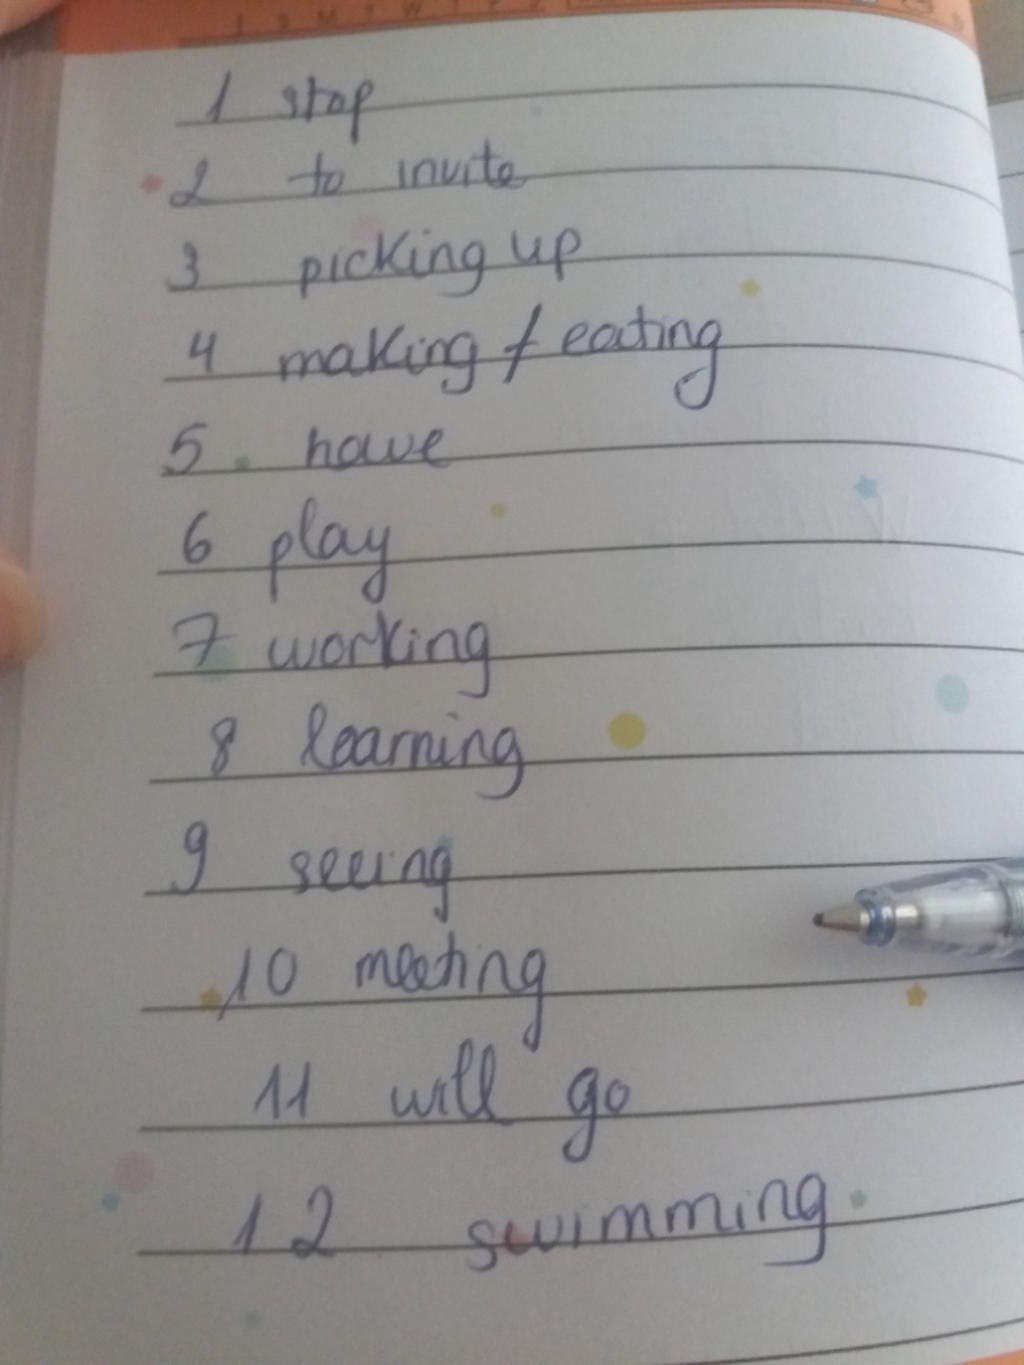 1 stop
2 to invite
3 picking up
4 making / eating
5. have
6 play
7 working
8 learning
9 seeing
10 meeting
11 will go
12 swimming